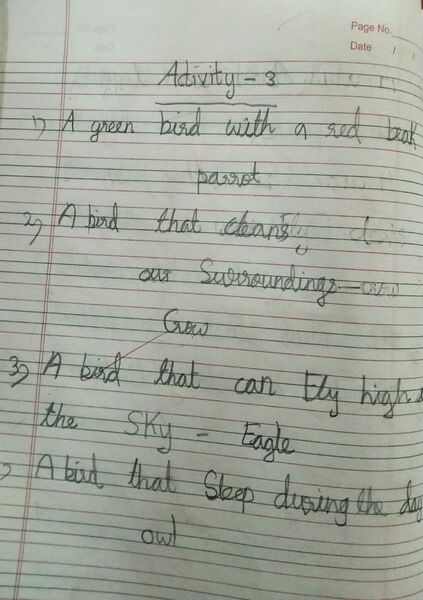 Page No.
Date / /
Activity - 3
1) A green bird with a red beak
parrot
2) A bird that cleans
our Surroundings - crow
Crow
3) A bird that can Fly high
the SKy - Eagle
A bird that Sleep during the day
owl